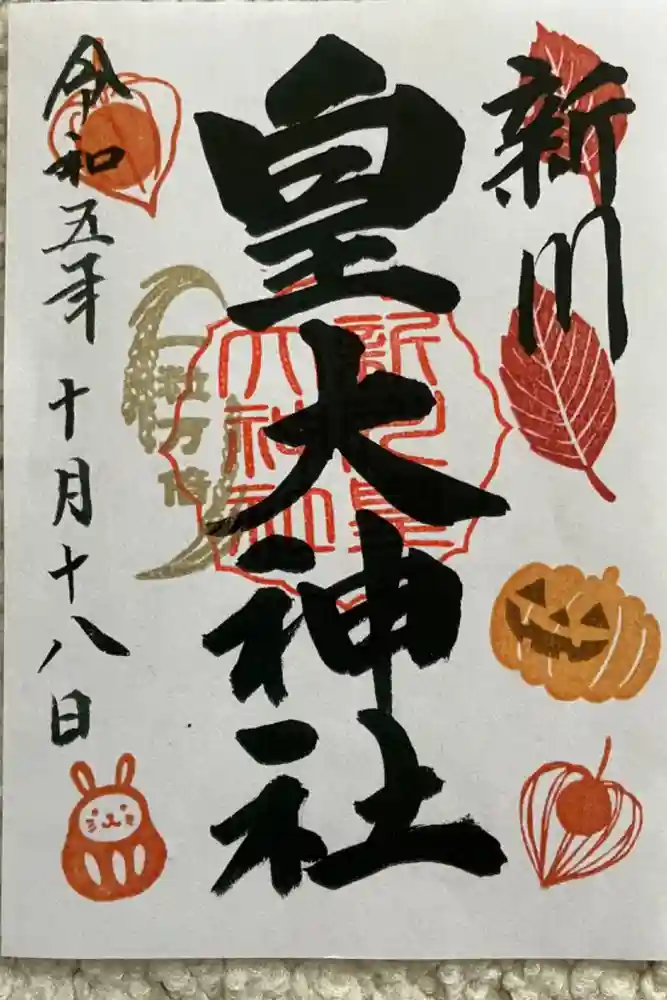 新川
皇大神社
新川皇
大神社
一粒万倍
令和五年十月十八日